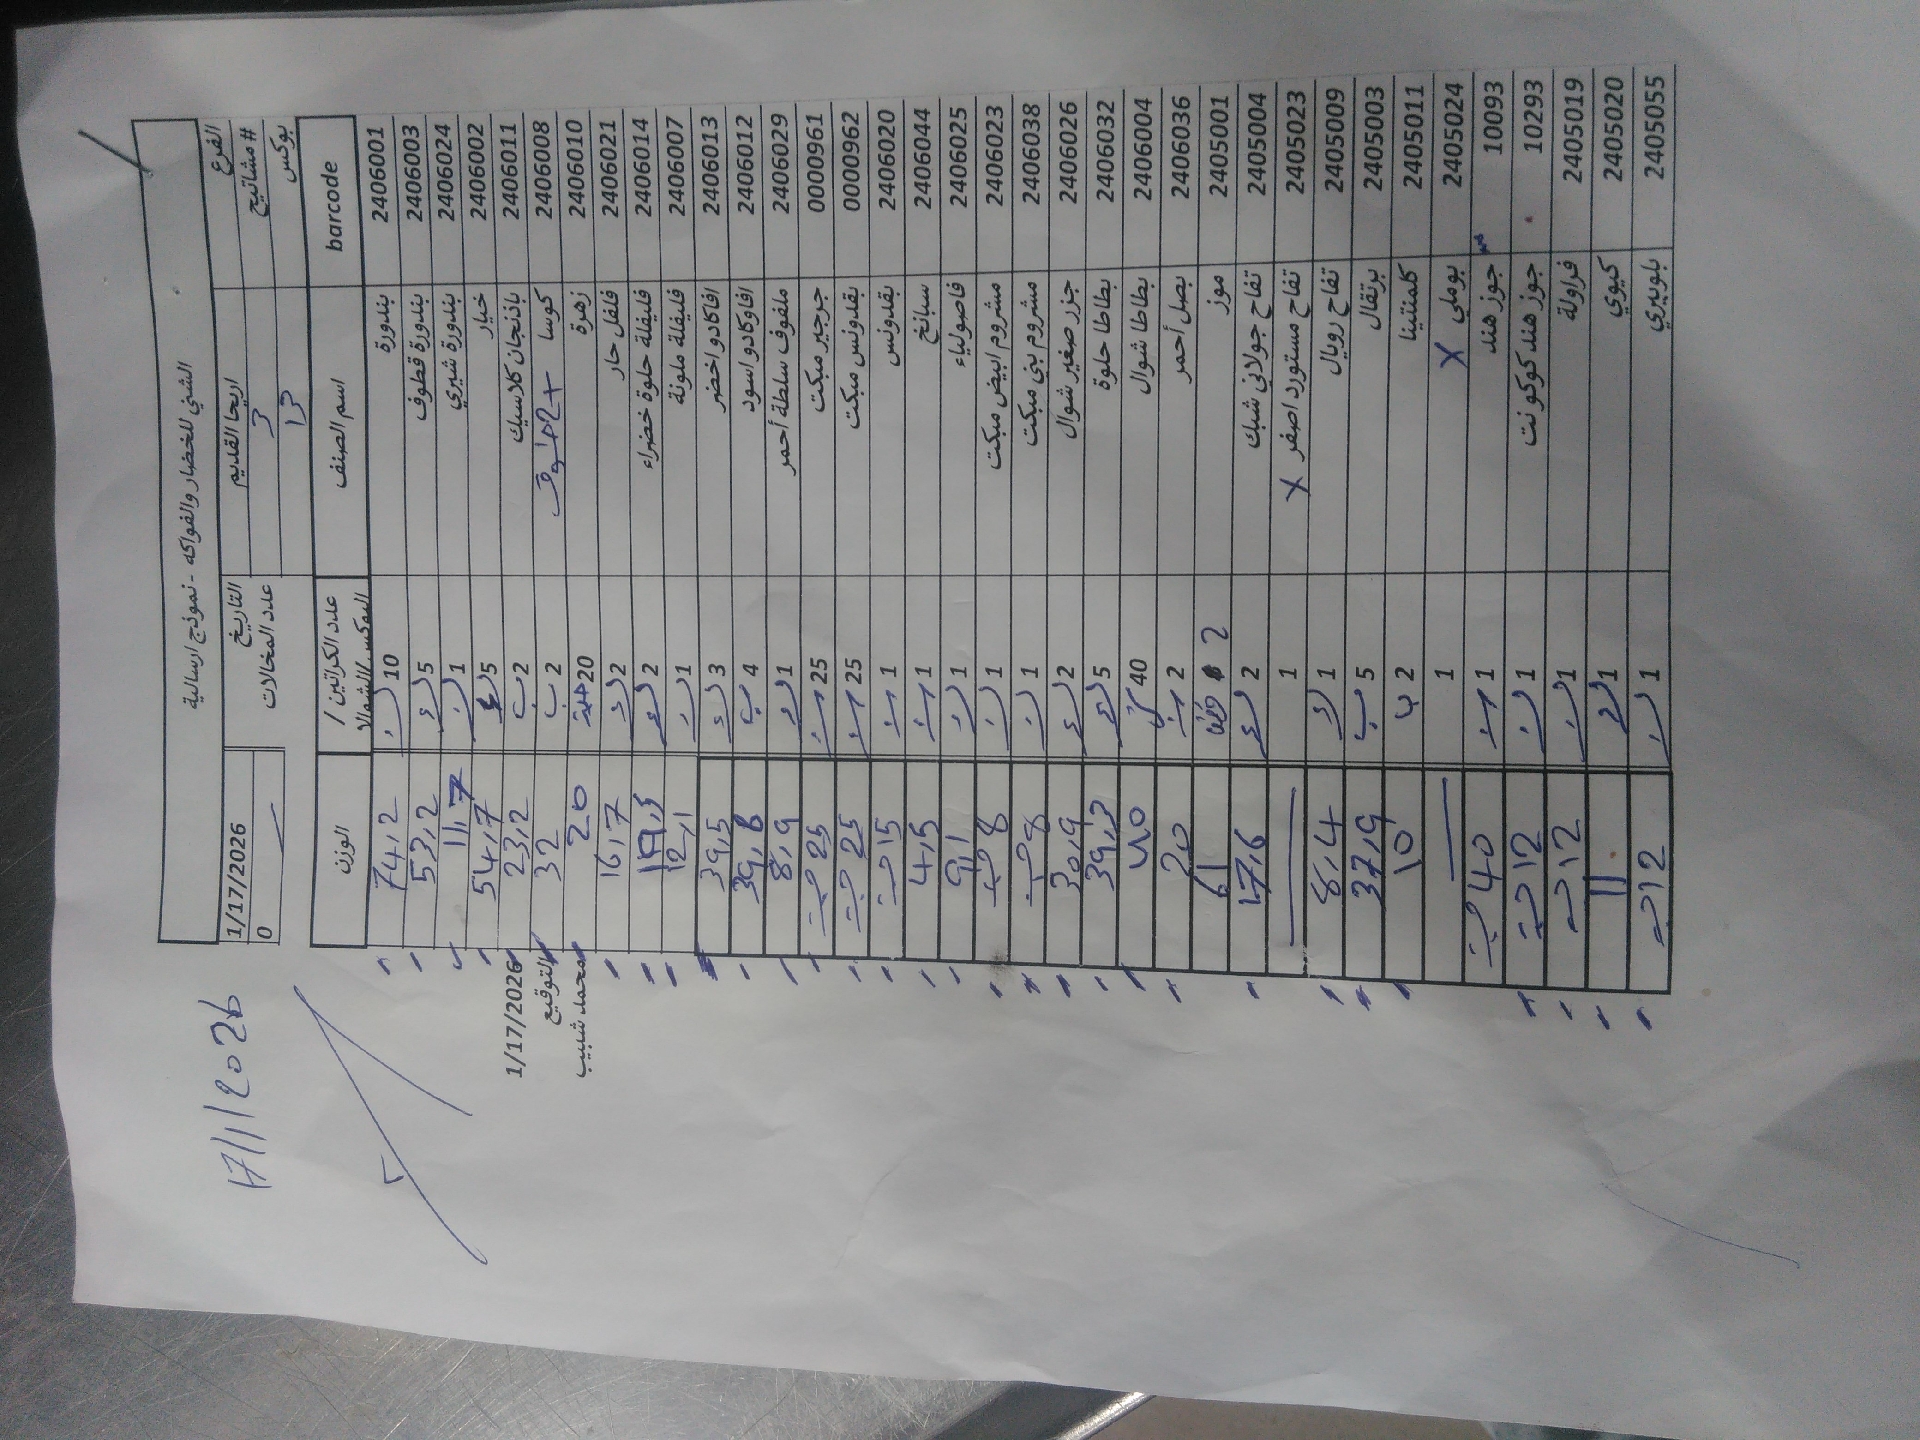 الشني للخضار والفواكه - نموذج ارسالية
الفرع اريحا القديم التاريخ 1/17/2026
# مشاتيح 3 عدد المخالات 0
بوكس 13
barcode اسم الصنف عدد الكراتين / البوكس /الشوالا الوزن
2406001 بندورة 10 74,2
2406003 بندورة قطوف 5 53,2
2406024 بندورة شيري 1 11,7
2406002 خيار 5 54,7
2406011 باذنجان كلاسيك 2 ب 23,2
2406008 كوسا 2 ب 32
2406010 زهرة 20 حبة 20
2406021 فلفل حار 2 16,7
2406014 فليفلة حلوة خضراء 2
2406007 فليفلة ملونة 1 12,1
2406013 افاكادو اخضر 3 39,5
2406012 افاوكادو اسود 4 ب 39,8
2406029 ملفوف سلطة أحمر 1 8,9
0000961 جرجير مبكت 25 25
0000962 بقدونس مبكت 25 25
2406020 بقدونس 1 15
2406044 سبانخ 1 4,5
2406025 فاصولياء 1 9,1
2406023 مشروم ابيض مبكت 1 8
2406038 مشروم بني مبكت 1 8
2406026 جزر صغير شوال 2 30,9
2406032 بطاطا حلوة 5 39,3
2406004 بطاطا شوال 40
2406036 بصل أحمر 2 20
2405001 موز 2 61
2405004 تفاح جولاني شبك 2 17,6
2405023 تفاح مستورد اصفر X 1 —
2405009 تفاح رويال 1 8,4
2405003 برتقال 5 ب 37,9
2405011 كلمنتينا 2 ب 10
2405024 بوملي X 1 —
10093 جوز هند 1 40
10293 جوز هند كوكو نت 1 12
2405019 فراولة 1 12
2405020 كيوي 1 11
2405055 بلوبيري 1 12
1/17/2026
التوقيع
محمد شبيب
17/1/2026